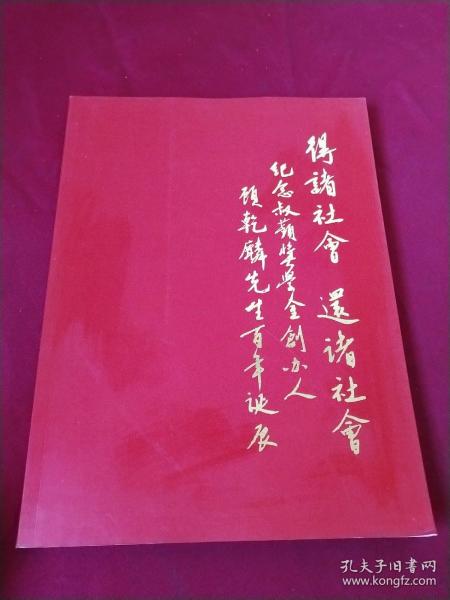 得諸社會 還諸社會
纪念叔蘋奨学金創办人
顾乾麟先生百年诞辰
孔夫子旧书网
www.kongfz.com